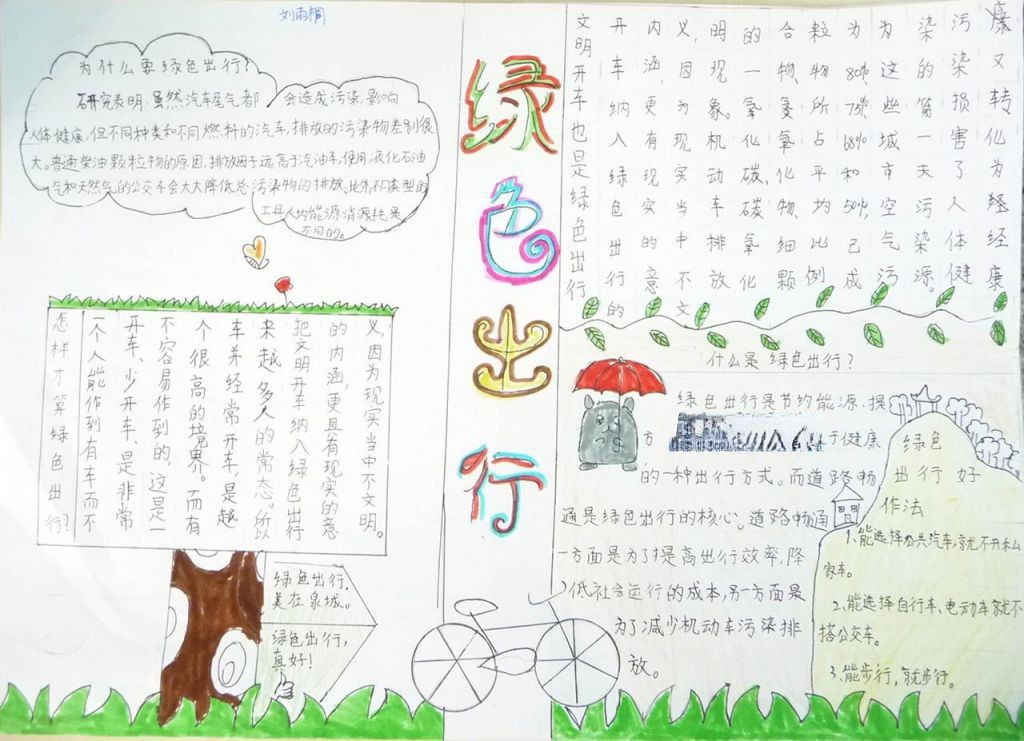 刘雨桐
为什么要绿色出行?
研究表明,虽然汽车尾气都会造成污染,影响
人体健康,但不同种类和不同燃料的汽车,排放的污染物差别很
大。普通柴油颗粒物的原因,排放因子远高于汽油车,使用液化石油
气和天然气的公交车会大大降低总污染物的排放。此外,不同类型的
不同的。
绿色出行
怎样才算绿色出行?
一个人能作到有车而不
开车、少开车、是非常
不容易作到的,这是一
个很高的境界。而有
车并经常开车,是越
来越多人的常态。所以
把文明开车纳入绿色出行
的内涵,更且有现实的意
义,因为现实当中不文明。
绿色出行,
美在泉城。
绿色出行,
真好!
文明开车也是绿色出行
开车纳入绿色出行的
内涵,更有现实的意
义,因为现实当中不文
明现象。机动车排放
的一氧化碳、碳氧化
合物、氮氧化物、细颗
粒物所占平均比例
为80% 75% 68%和50%,已成
为这些城市空气污
染的第一天污染源。
污染损害了人体健
康又转化为经康
什么是绿色出行?
绿色出行是节约能源、提
方于健康
的一种出行方式。而道路畅
通是绿色出行的核心。道路畅通
一方面是为了提高出行效率,降
低社会运行的成本,另一方面是
为了减少机动车污染排
放。
绿色
出行好
作法
1、能选择公共汽车,就不开私
家车。
2、能选择自行车、电动车就不
搭公交车。
3、能步行,就步行。